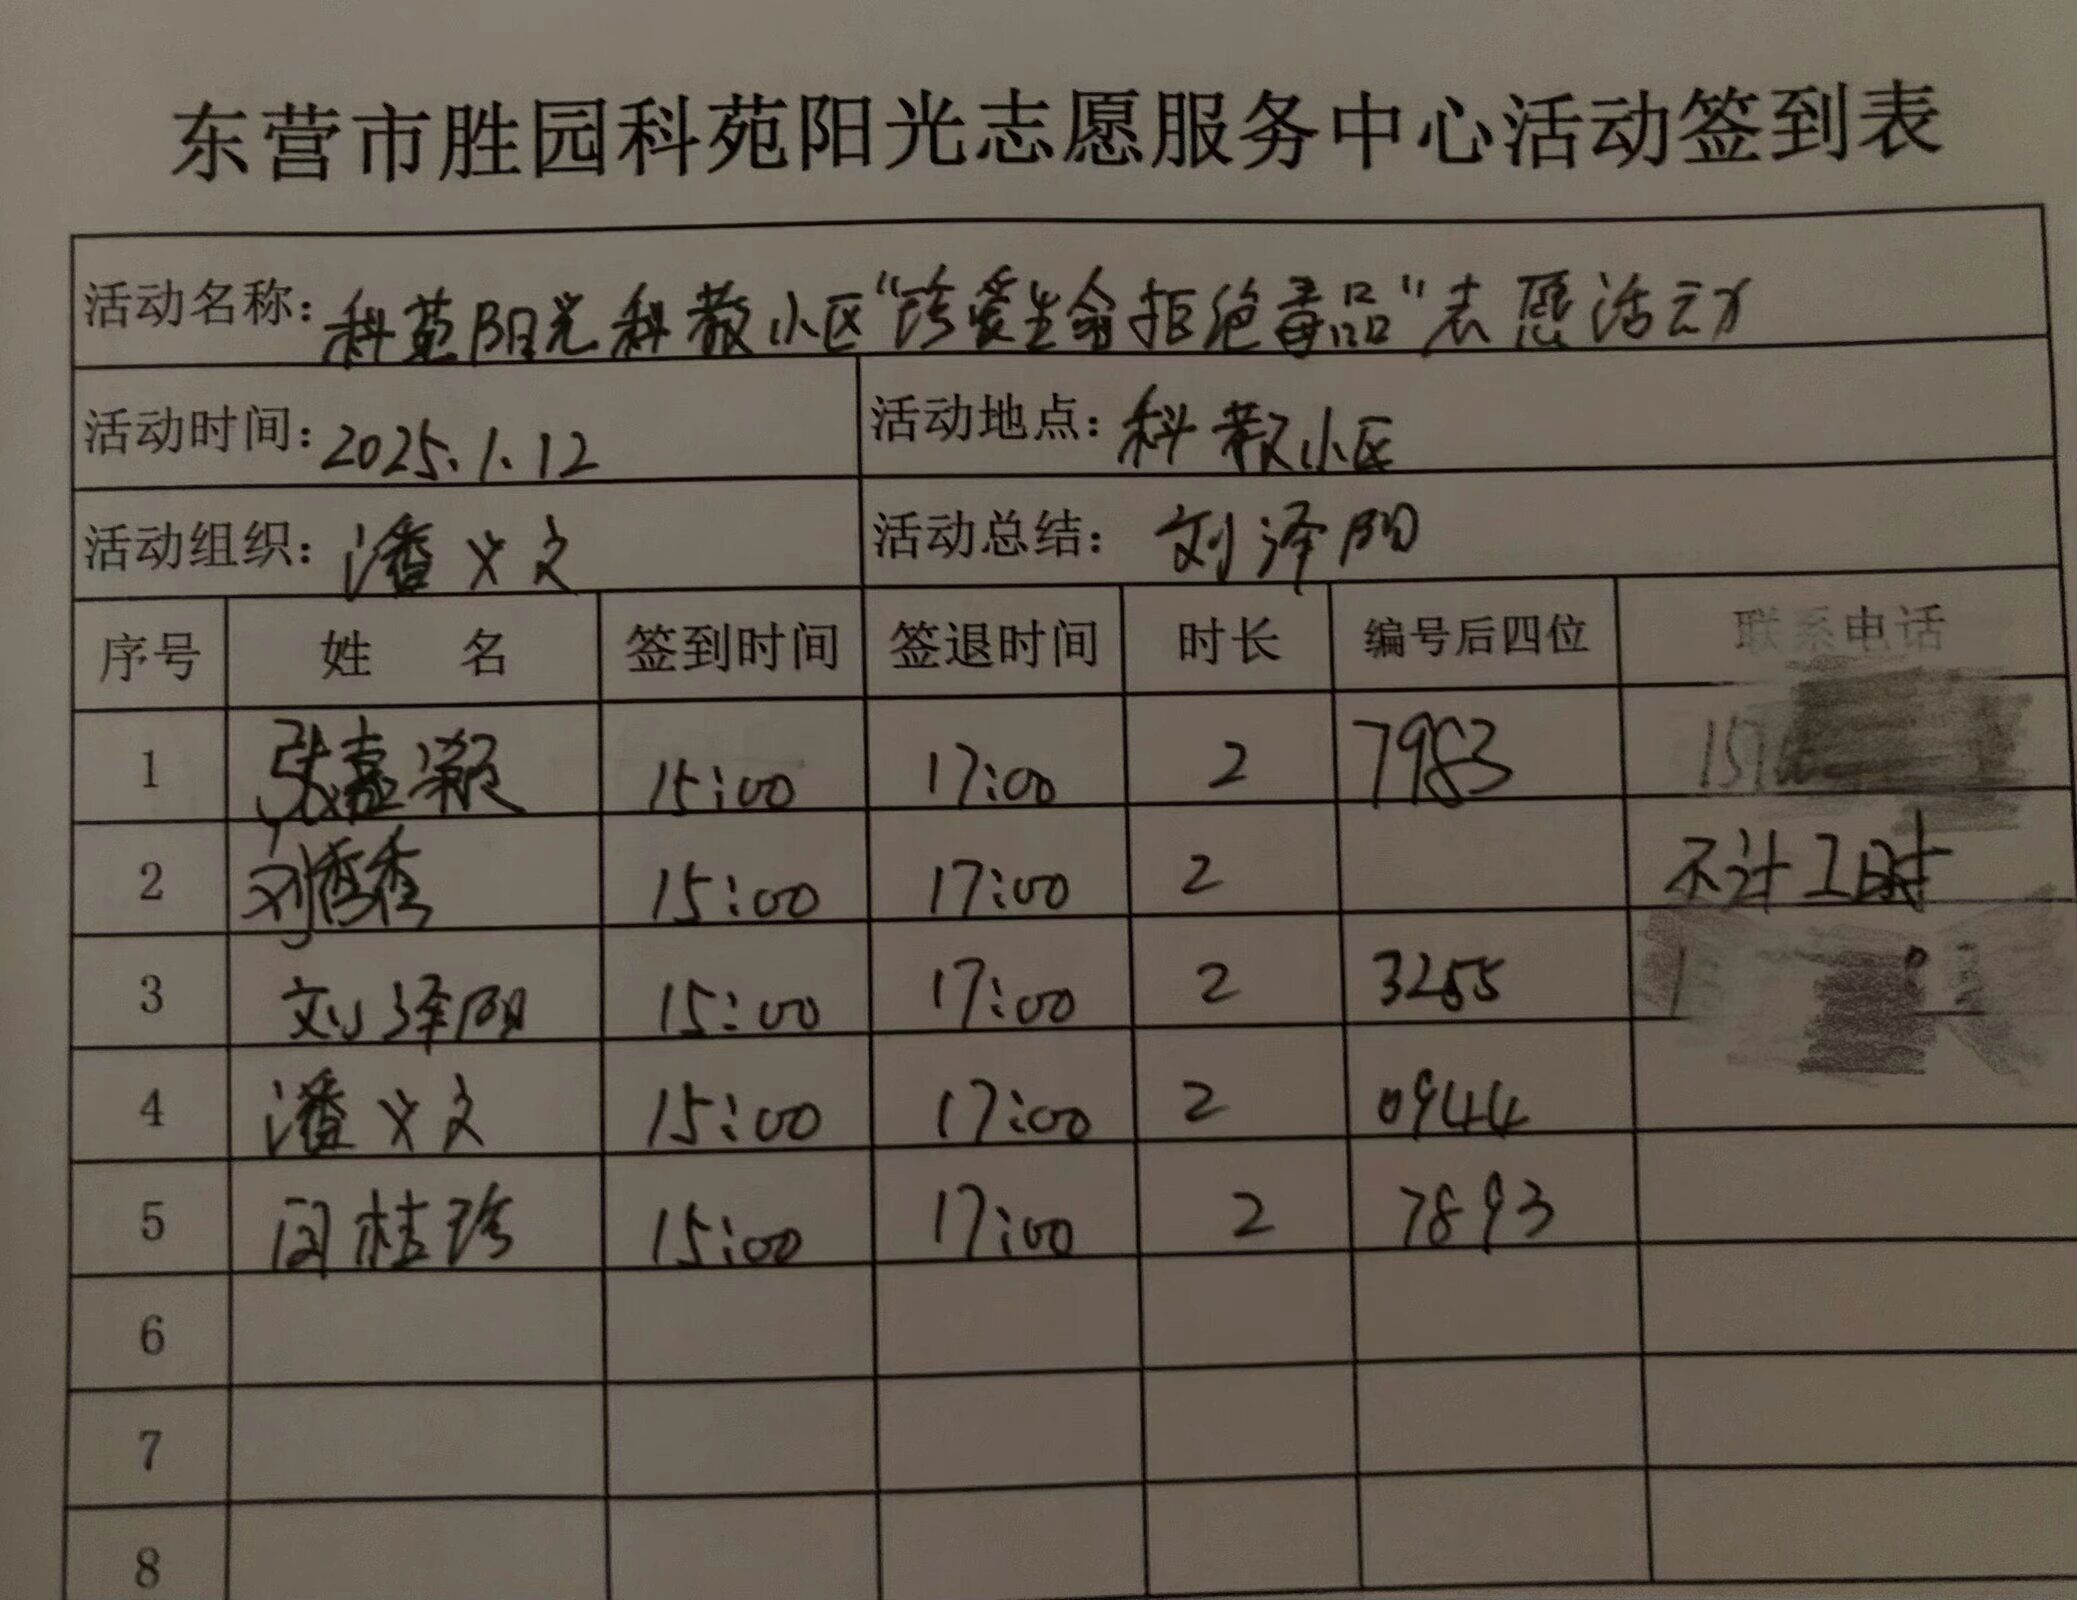 东营市胜园科苑阳光志愿服务中心活动签到表
活动名称：科苑阳光科教小区“珍爱生命拒绝毒品”志愿活动
活动时间：2025.1.12 活动地点：科教小区
活动组织：潘义文 活动总结：刘泽阳
序号 姓名 签到时间 签退时间 时长 编号后四位 联系电话
1 张嘉颖 15:00 17:00 2 7983
2 刘香秀 15:00 17:00 2 不计工时
3 刘泽阳 15:00 17:00 2 3255
4 潘义文 15:00 17:00 2 0944
5 闫桂珍 15:00 17:00 2 7893
6
7
8